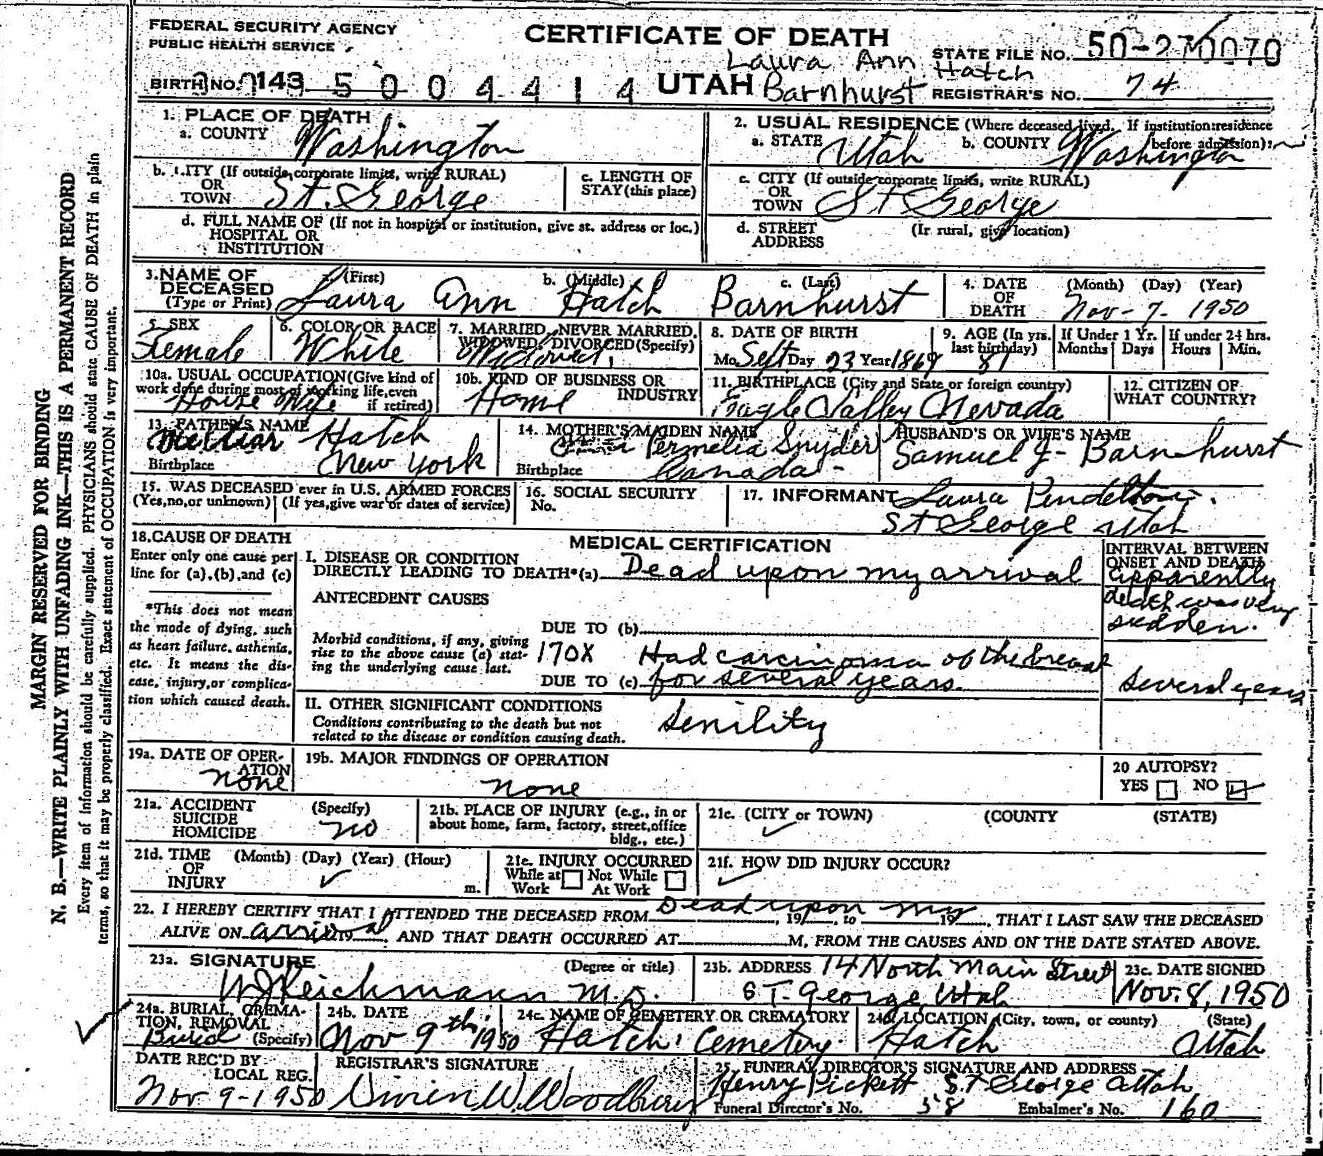 FEDERAL SECURITY AGENCY
PUBLIC HEALTH SERVICE
CERTIFICATE OF DEATH
STATE FILE NO. 50-270070
Laura Ann Hatch
BIRTH NO. 143 5 0 0 4 4 1 4 UTAH Barnhurst REGISTRAR'S NO. 74
MARGIN RESERVED FOR BINDING
N. B.—WRITE PLAINLY WITH UNFADING INK—THIS IS A PERMANENT RECORD
Every item of information should be carefully supplied. PHYSICIANS should state CAUSE OF DEATH in plain
terms, so that it may be properly classified. Exact statement of OCCUPATION is very important.
1. PLACE OF DEATH
a. COUNTY Washington
2. USUAL RESIDENCE (Where deceased lived. If institution: residence before admission):
a. STATE Utah b. COUNTY Washington
b. CITY (If outside corporate limits, write RURAL)
OR
TOWN St. George
c. LENGTH OF
STAY (this place)
c. CITY (If outside corporate limits, write RURAL)
OR
TOWN St George
d. FULL NAME OF (If not in hospital or institution, give st. address or loc.)
HOSPITAL OR
INSTITUTION
d. STREET (If rural, give location)
ADDRESS
3. NAME OF DECEASED (Type or Print) (First) b. (Middle) c. (Last)
Laura Ann Hatch Barnhurst
4. DATE OF DEATH (Month) (Day) (Year)
Nov - 7. 1950
5. SEX
Female
6. COLOR OR RACE
White
7. MARRIED, NEVER MARRIED,
WIDOWED, DIVORCED (Specify)
Widowed
8. DATE OF BIRTH
Mo. Sept Day 23 Year 1869
9. AGE (In yrs. last birthday) 81
If Under 1 Yr. Months Days
If under 24 hrs. Hours Min.
10a. USUAL OCCUPATION (Give kind of
work done during most of working life, even
if retired)
House Wife
10b. KIND OF BUSINESS OR
INDUSTRY
Home
11. BIRTHPLACE (City and State or foreign country)
Eagle Valley Nevada
12. CITIZEN OF
WHAT COUNTRY?
13. FATHER'S NAME
Meltiar Hatch
Birthplace New York
14. MOTHER'S MAIDEN NAME
Permelia Snyder
Birthplace Canada -
HUSBAND'S OR WIFE'S NAME
Samuel J- Barnhurst
15. WAS DECEASED ever in U.S. ARMED FORCES
(Yes, no, or unknown) (If yes, give war or dates of service)
16. SOCIAL SECURITY
No.
17. INFORMANT Laura Pendelton
St George Utah
18. CAUSE OF DEATH
Enter only one cause per
line for (a), (b), and (c)
*This does not mean
the mode of dying, such
as heart failure, asthenia,
etc. It means the dis-
ease, injury, or complica-
tion which caused death.
MEDICAL CERTIFICATION
I. DISEASE OR CONDITION
DIRECTLY LEADING TO DEATH*(a) Dead upon my arrival
INTERVAL BETWEEN
ONSET AND DEATH
apparently
death was very
sudden.
ANTECEDENT CAUSES
DUE TO (b)
Morbid conditions, if any, giving
rise to the above cause (a) stat-
ing the underlying cause last.
170X Had carcinoma of the breast
DUE TO (c) for several years.
several years
II. OTHER SIGNIFICANT CONDITIONS
Conditions contributing to the death but not
related to the disease or condition causing death.
Senility
19a. DATE OF OPER-
ATION
none
19b. MAJOR FINDINGS OF OPERATION
none
20 AUTOPSY?
YES NO
21a. ACCIDENT (Specify)
SUICIDE
HOMICIDE
no
21b. PLACE OF INJURY (e.g., in or
about home, farm, factory, street, office
bldg., etc.)
21c. (CITY or TOWN) (COUNTY (STATE)
21d. TIME (Month) (Day) (Year) (Hour)
OF
INJURY m.
21e. INJURY OCCURRED
While at Not While
Work At Work
21f. HOW DID INJURY OCCUR?
22. I HEREBY CERTIFY THAT I ATTENDED THE DECEASED FROM Dead upon, 19, to my 19, THAT I LAST SAW THE DECEASED
ALIVE ON arrival 19, AND THAT DEATH OCCURRED AT M, FROM THE CAUSES AND ON THE DATE STATED ABOVE.
23a. SIGNATURE (Degree or title)
W J Reichmann M.D.
23b. ADDRESS 14 North Main Street
St. George Utah
23c. DATE SIGNED
Nov. 8, 1950
24a. BURIAL, CREMA-
TION, REMOVAL
(Specify)
Buried
24b. DATE
Nov 9th 1950
24c. NAME OF CEMETERY OR CREMATORY
Hatch Cemetery
24d. LOCATION (City, town, or county) (State)
Hatch Utah
DATE REC'D BY
LOCAL REG.
Nov 9-1950
REGISTRAR'S SIGNATURE
Vivien W. Woodbury
25. FUNERAL DIRECTOR'S SIGNATURE AND ADDRESS
Henry Pickett St George Utah
Funeral Director's No. 38 Embalmer's No. 160